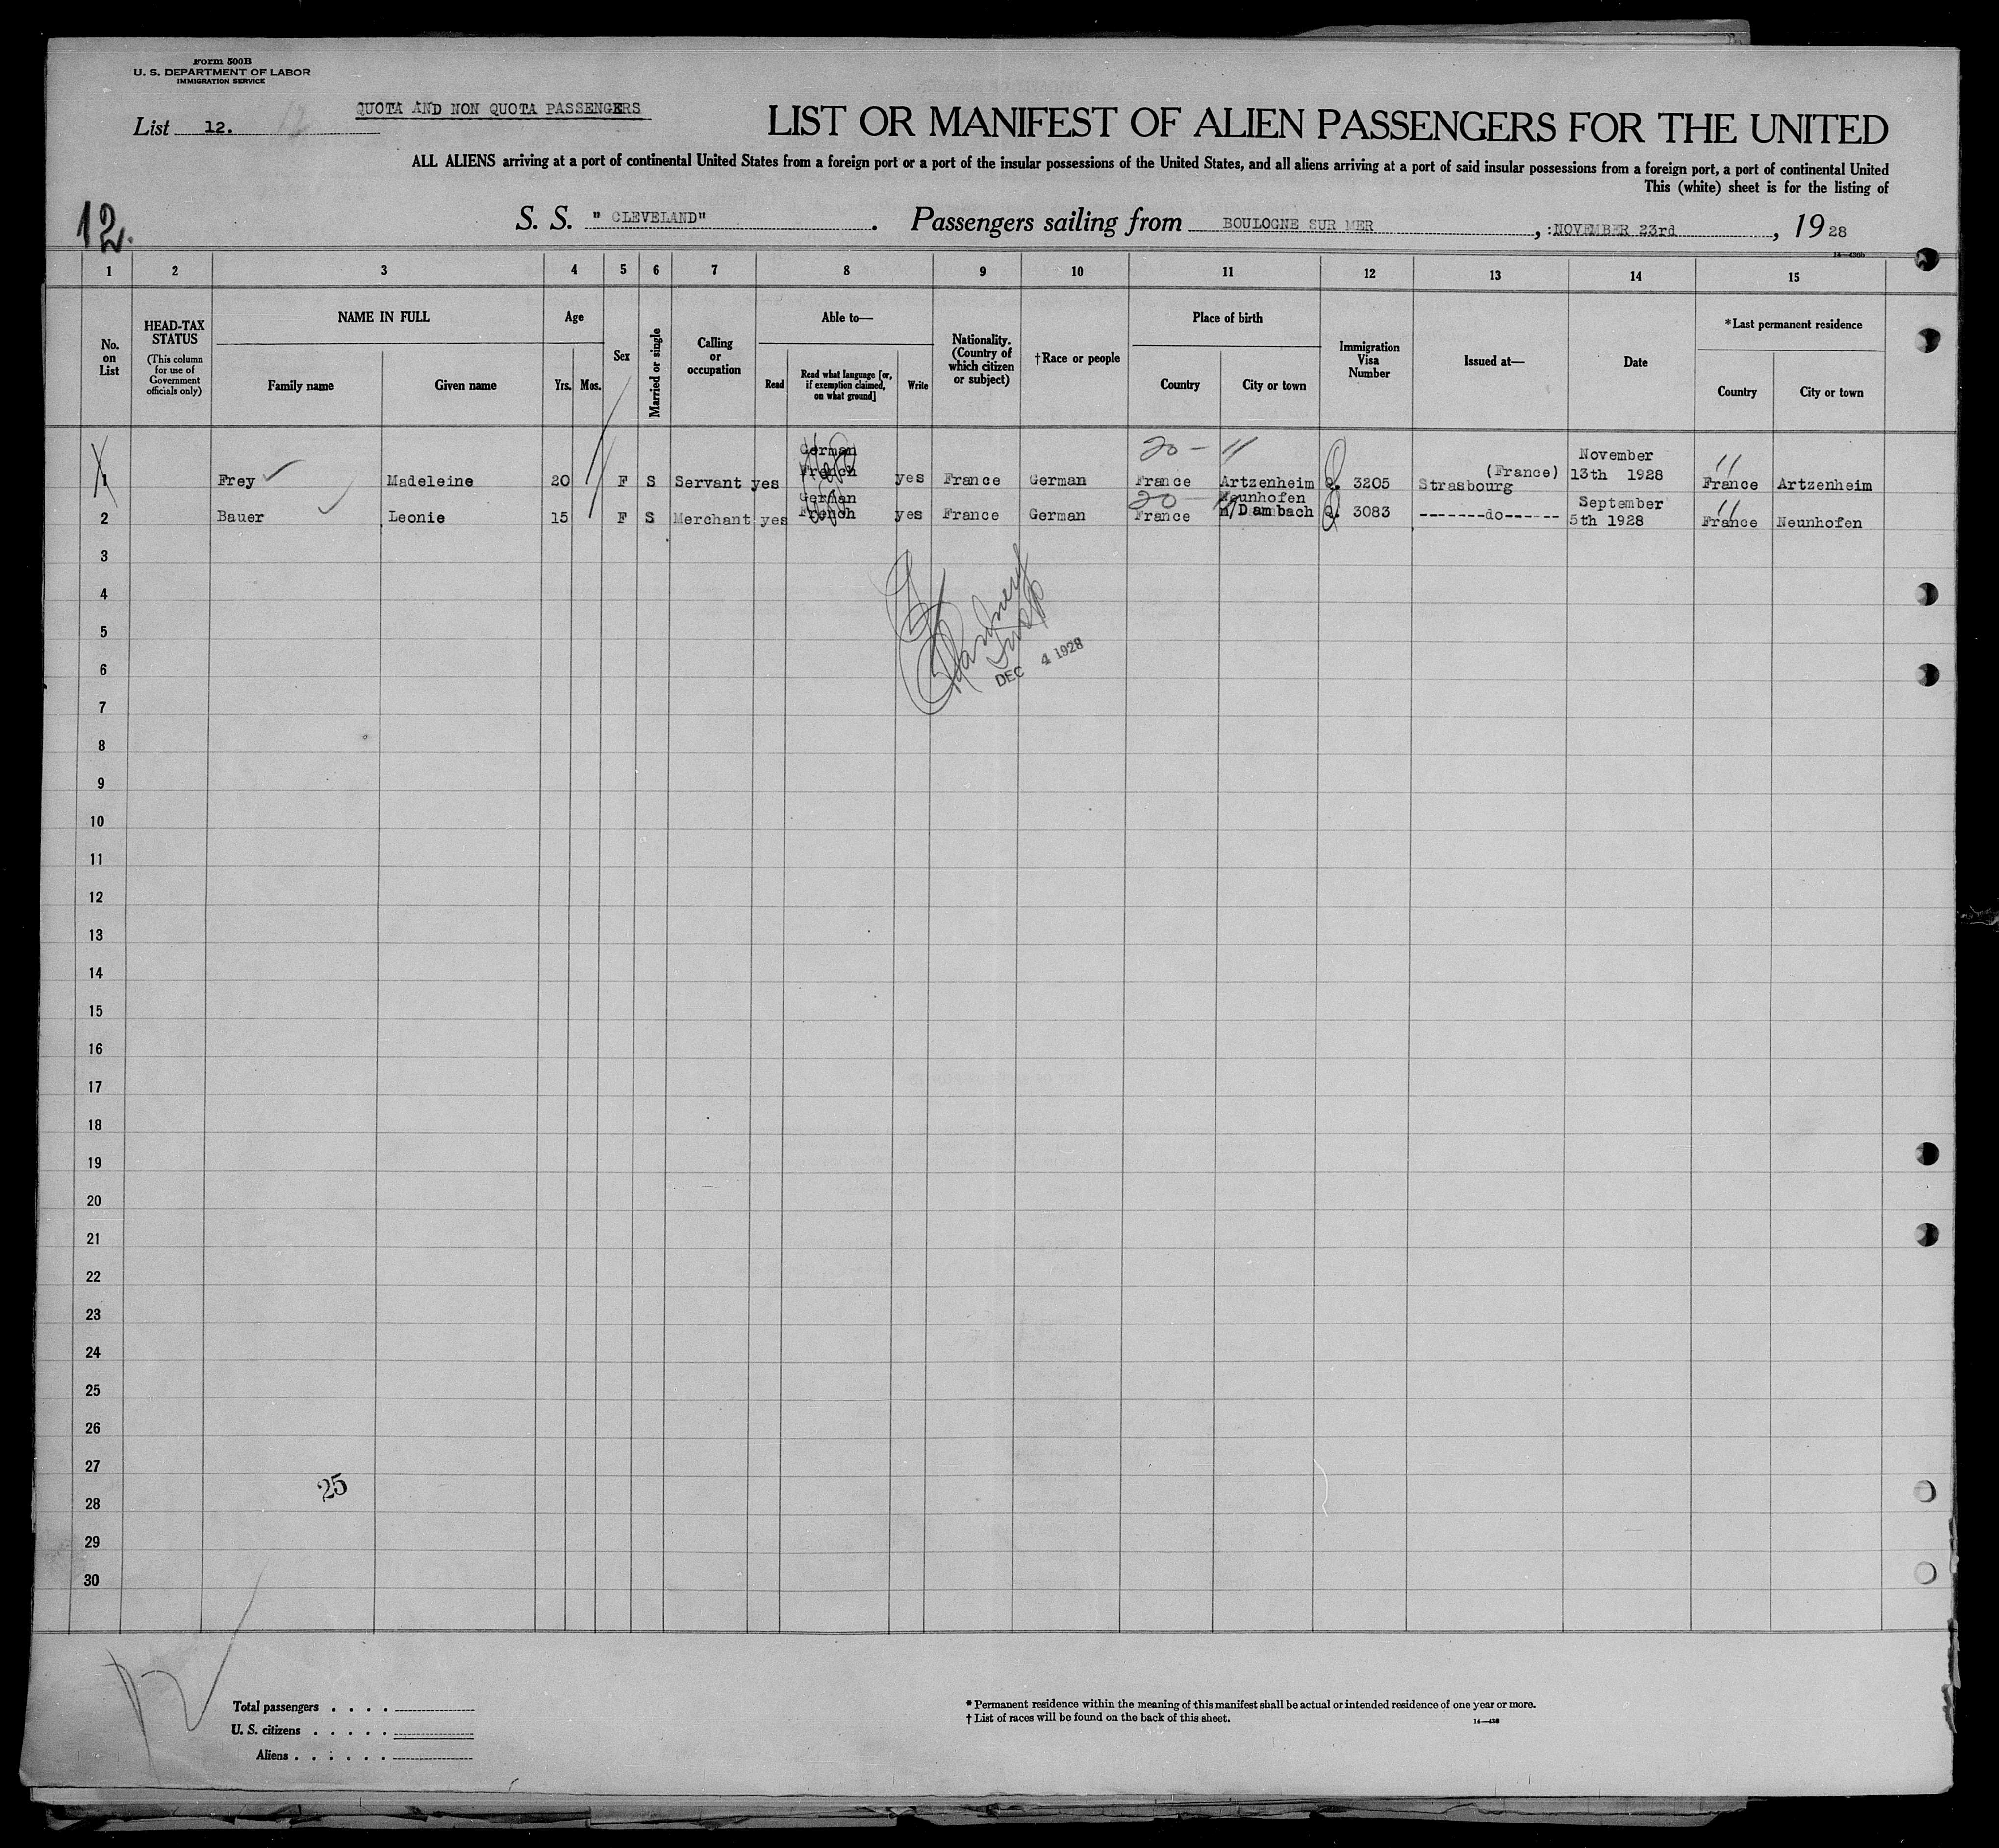 Form 500B
U. S. DEPARTMENT OF LABOR
IMMIGRATION SERVICE
QUOTA AND NON QUOTA PASSENGERS
List 12. 12
LIST OR MANIFEST OF ALIEN PASSENGERS FOR THE UNITED
ALL ALIENS arriving at a port of continental United States from a foreign port or a port of the insular possessions of the United States, and all aliens arriving at a port of said insular possessions from a foreign port, a port of continental United
This (white) sheet is for the listing of
12.
S. S. "CLEVELAND". Passengers sailing from BOULOGNE SUR MER, :NOVEMBER 23rd, 19 28
14—430b
1 2 3 4 5 6 7 8 9 10 11 12 13 14 15
No. on List
HEAD-TAX STATUS
(This column for use of Government officials only)
NAME IN FULL
Family name Given name
Age
Yrs. Mos.
Sex
Married or single
Calling or occupation
Able to—
Read
Read what language [or, if exemption claimed, on what ground]
Write
Nationality. (Country of which citizen or subject)
†Race or people
Place of birth
Country City or town
Immigration Visa Number
Issued at—
Date
*Last permanent residence
Country City or town
20 - 11
1 Frey Madeleine 20 F S Servant yes German French yes France German France Artzenheim Q. 3205 (France) Strasbourg November 13th 1928 France Artzenheim
20 - 11
2 Bauer Leonie 15 F S Merchant yes German French yes France German France Neunhofen n/Dambach Q. 3083 -------do------ September 5th 1928 France Neunhofen
3
4
5
6
DEC 4 1928
7
8
9
10
11
12
13
14
15
16
17
18
19
20
21
22
23
24
25
26
27
25
28
29
30
Total passengers . . . .
U. S. citizens . . . . .
Aliens . . . . . .
* Permanent residence within the meaning of this manifest shall be actual or intended residence of one year or more.
† List of races will be found on the back of this sheet.
14—430